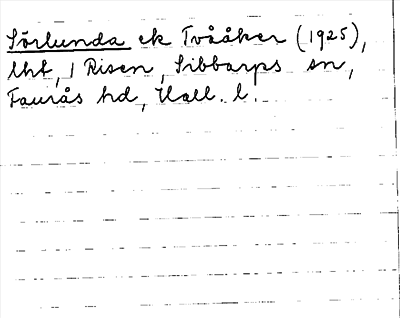 Sörlunda ek Tvååker (1925),
lht, 1 Risen, Sibbarps sn,
Faurås hd, Hall. l.